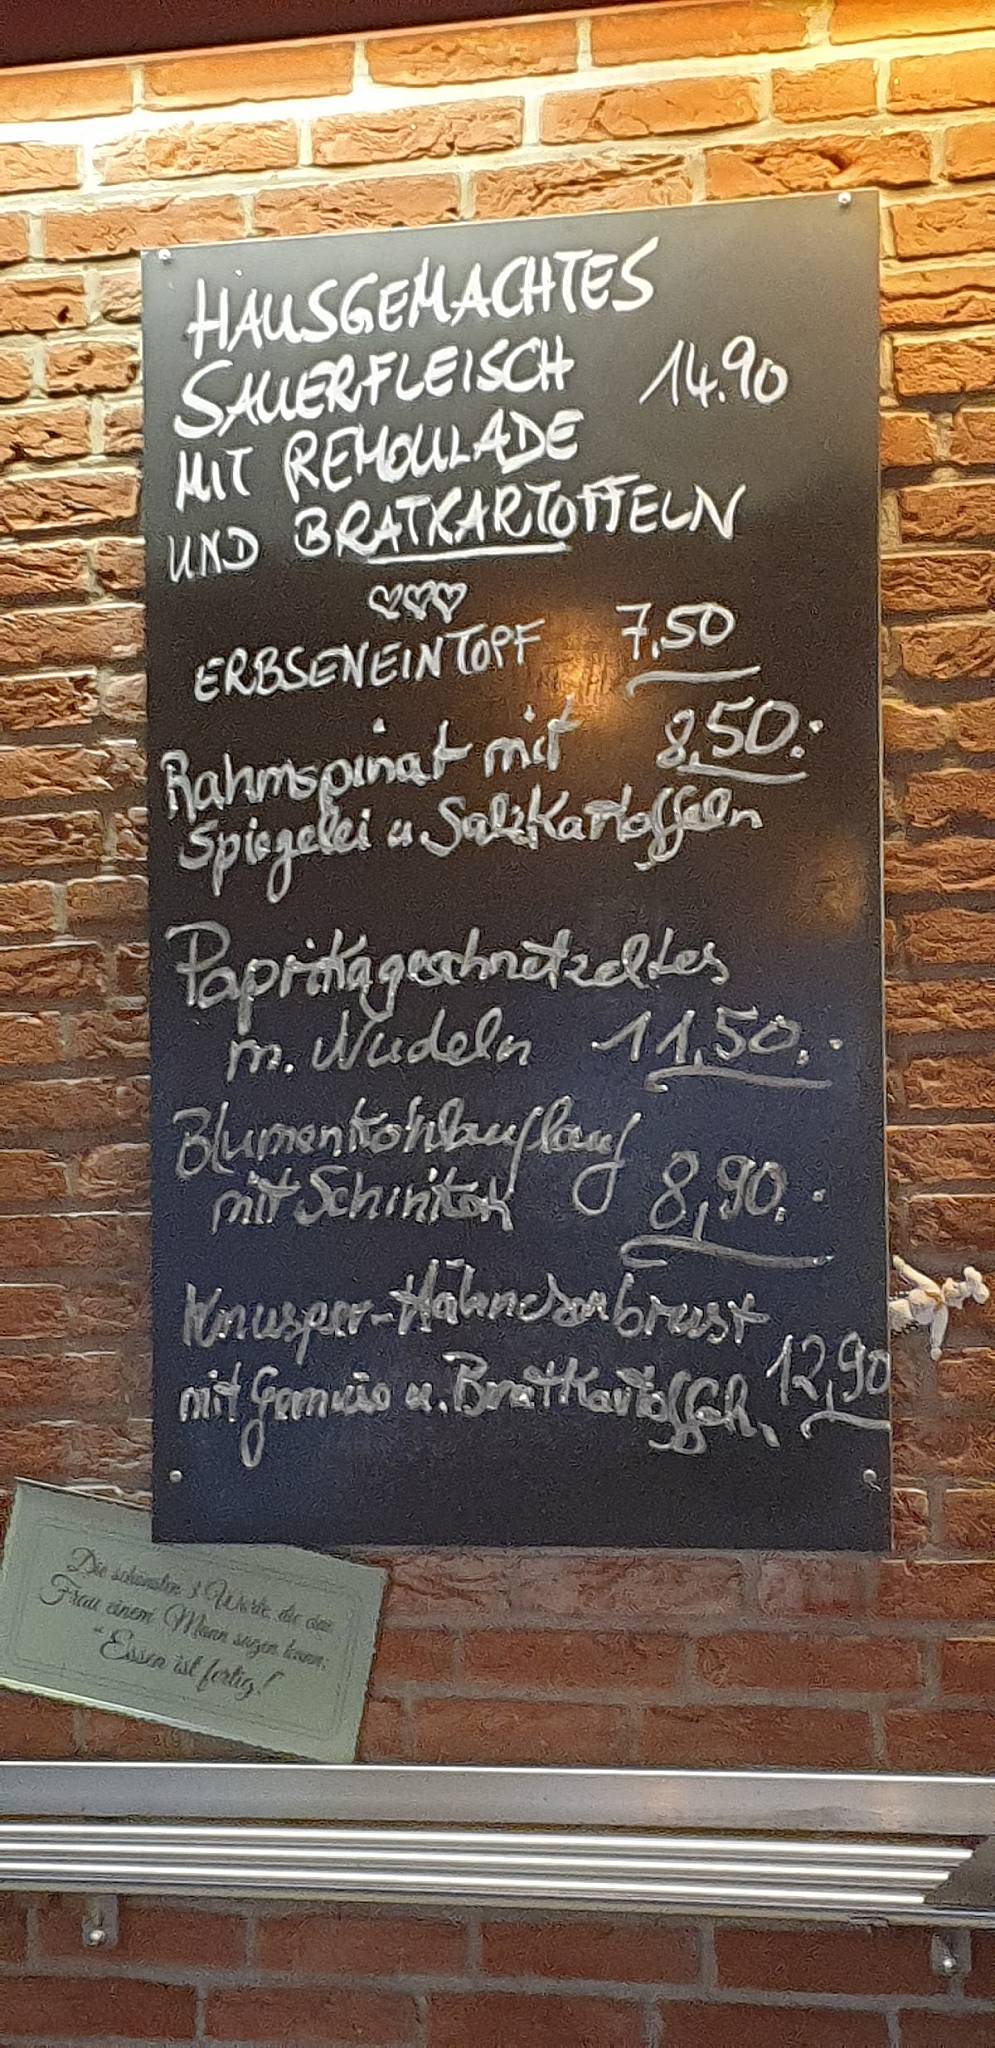 HAUSGEMACHTES
SAUERFLEISCH 14.90
MIT REMOULADE
UND BRATKARTOFFELN
ERBSENEINTOPF 7,50
Rahmspinat mit 8,50.-
Spiegelei u Salzkartoffeln
Paprikageschnetzeltes
m. Nudeln 11,50.-
Blumenkohlauflauf
mit Schinken 8,90.-
Knusper-Hähnchenbrust
mit Gemüse u. Bratkartoffeln, 12,90
Die schönsten 3 Worte, die eine
Frau einem Mann sagen kann:
"Essen ist fertig!